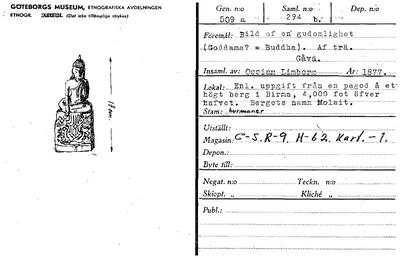 GÖTEBORGS MUSEUM, ETNOGRAFISKA AVDELNINGEN
ETNOGR. (Det icke tillämpliga strykes)
17 cm.
Gen. n:o 509 a
Saml. n:o 294 b.
Dep. n:o
Föremål: Bild af en gudomlighet
(Goddama? = Buddha). Af trä.
Gåva.
Insaml. av: Ossian Limborg År: 1877.
Lokal: Enl. uppgift från en pagod å ett
högt berg i Birma, 4,000 fot öfver
hafvet. Bergets namn Molait.
Stam: burmaner
Utställt:
Magasin: C-S. R-9. H-62. Karl. -1.
Depon.:
Byte till:
Negat. n:o Teckn. n:o
Skiopt. „ Kliché „
Publ.: